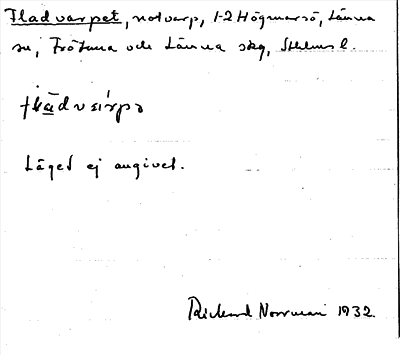 Fladvarpet, notvarp, 1-2 Högmarsö, Länna
sn, Frötuna och Länna skg, Sthlms l.
Läget ej angivet.
Rickard Norrman 1932.